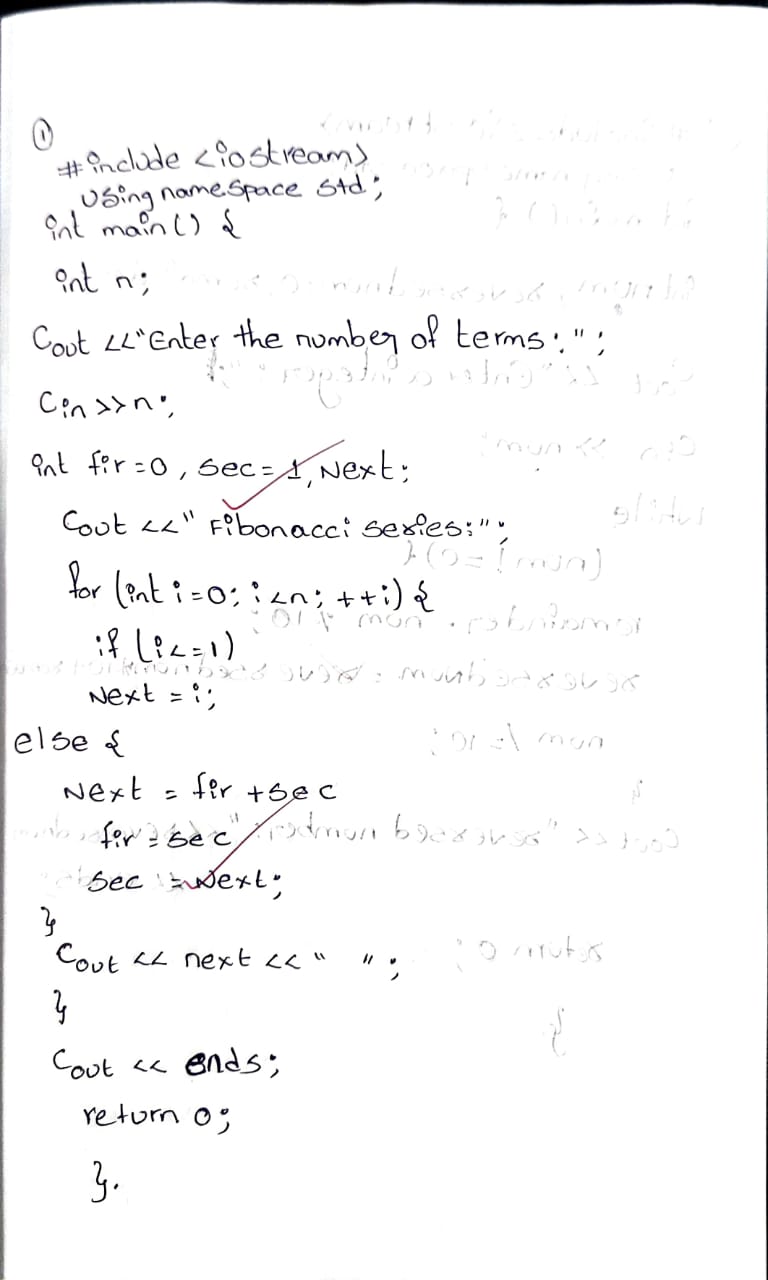 ①
#include <iostream>
using namespace std;
int main() {
int n;
Cout <<"Enter the number of terms:";
Cin >>n;
int fir=0, sec=1, Next;
Cout <<" Fibonacci series:";
for (int i=0; i<n; ++i) {
if (i<=1)
Next = i;
else {
Next = fir +sec
fir = sec
sec = Next;
}
Cout << next << " ";
}
Cout << ends;
return 0;
}.